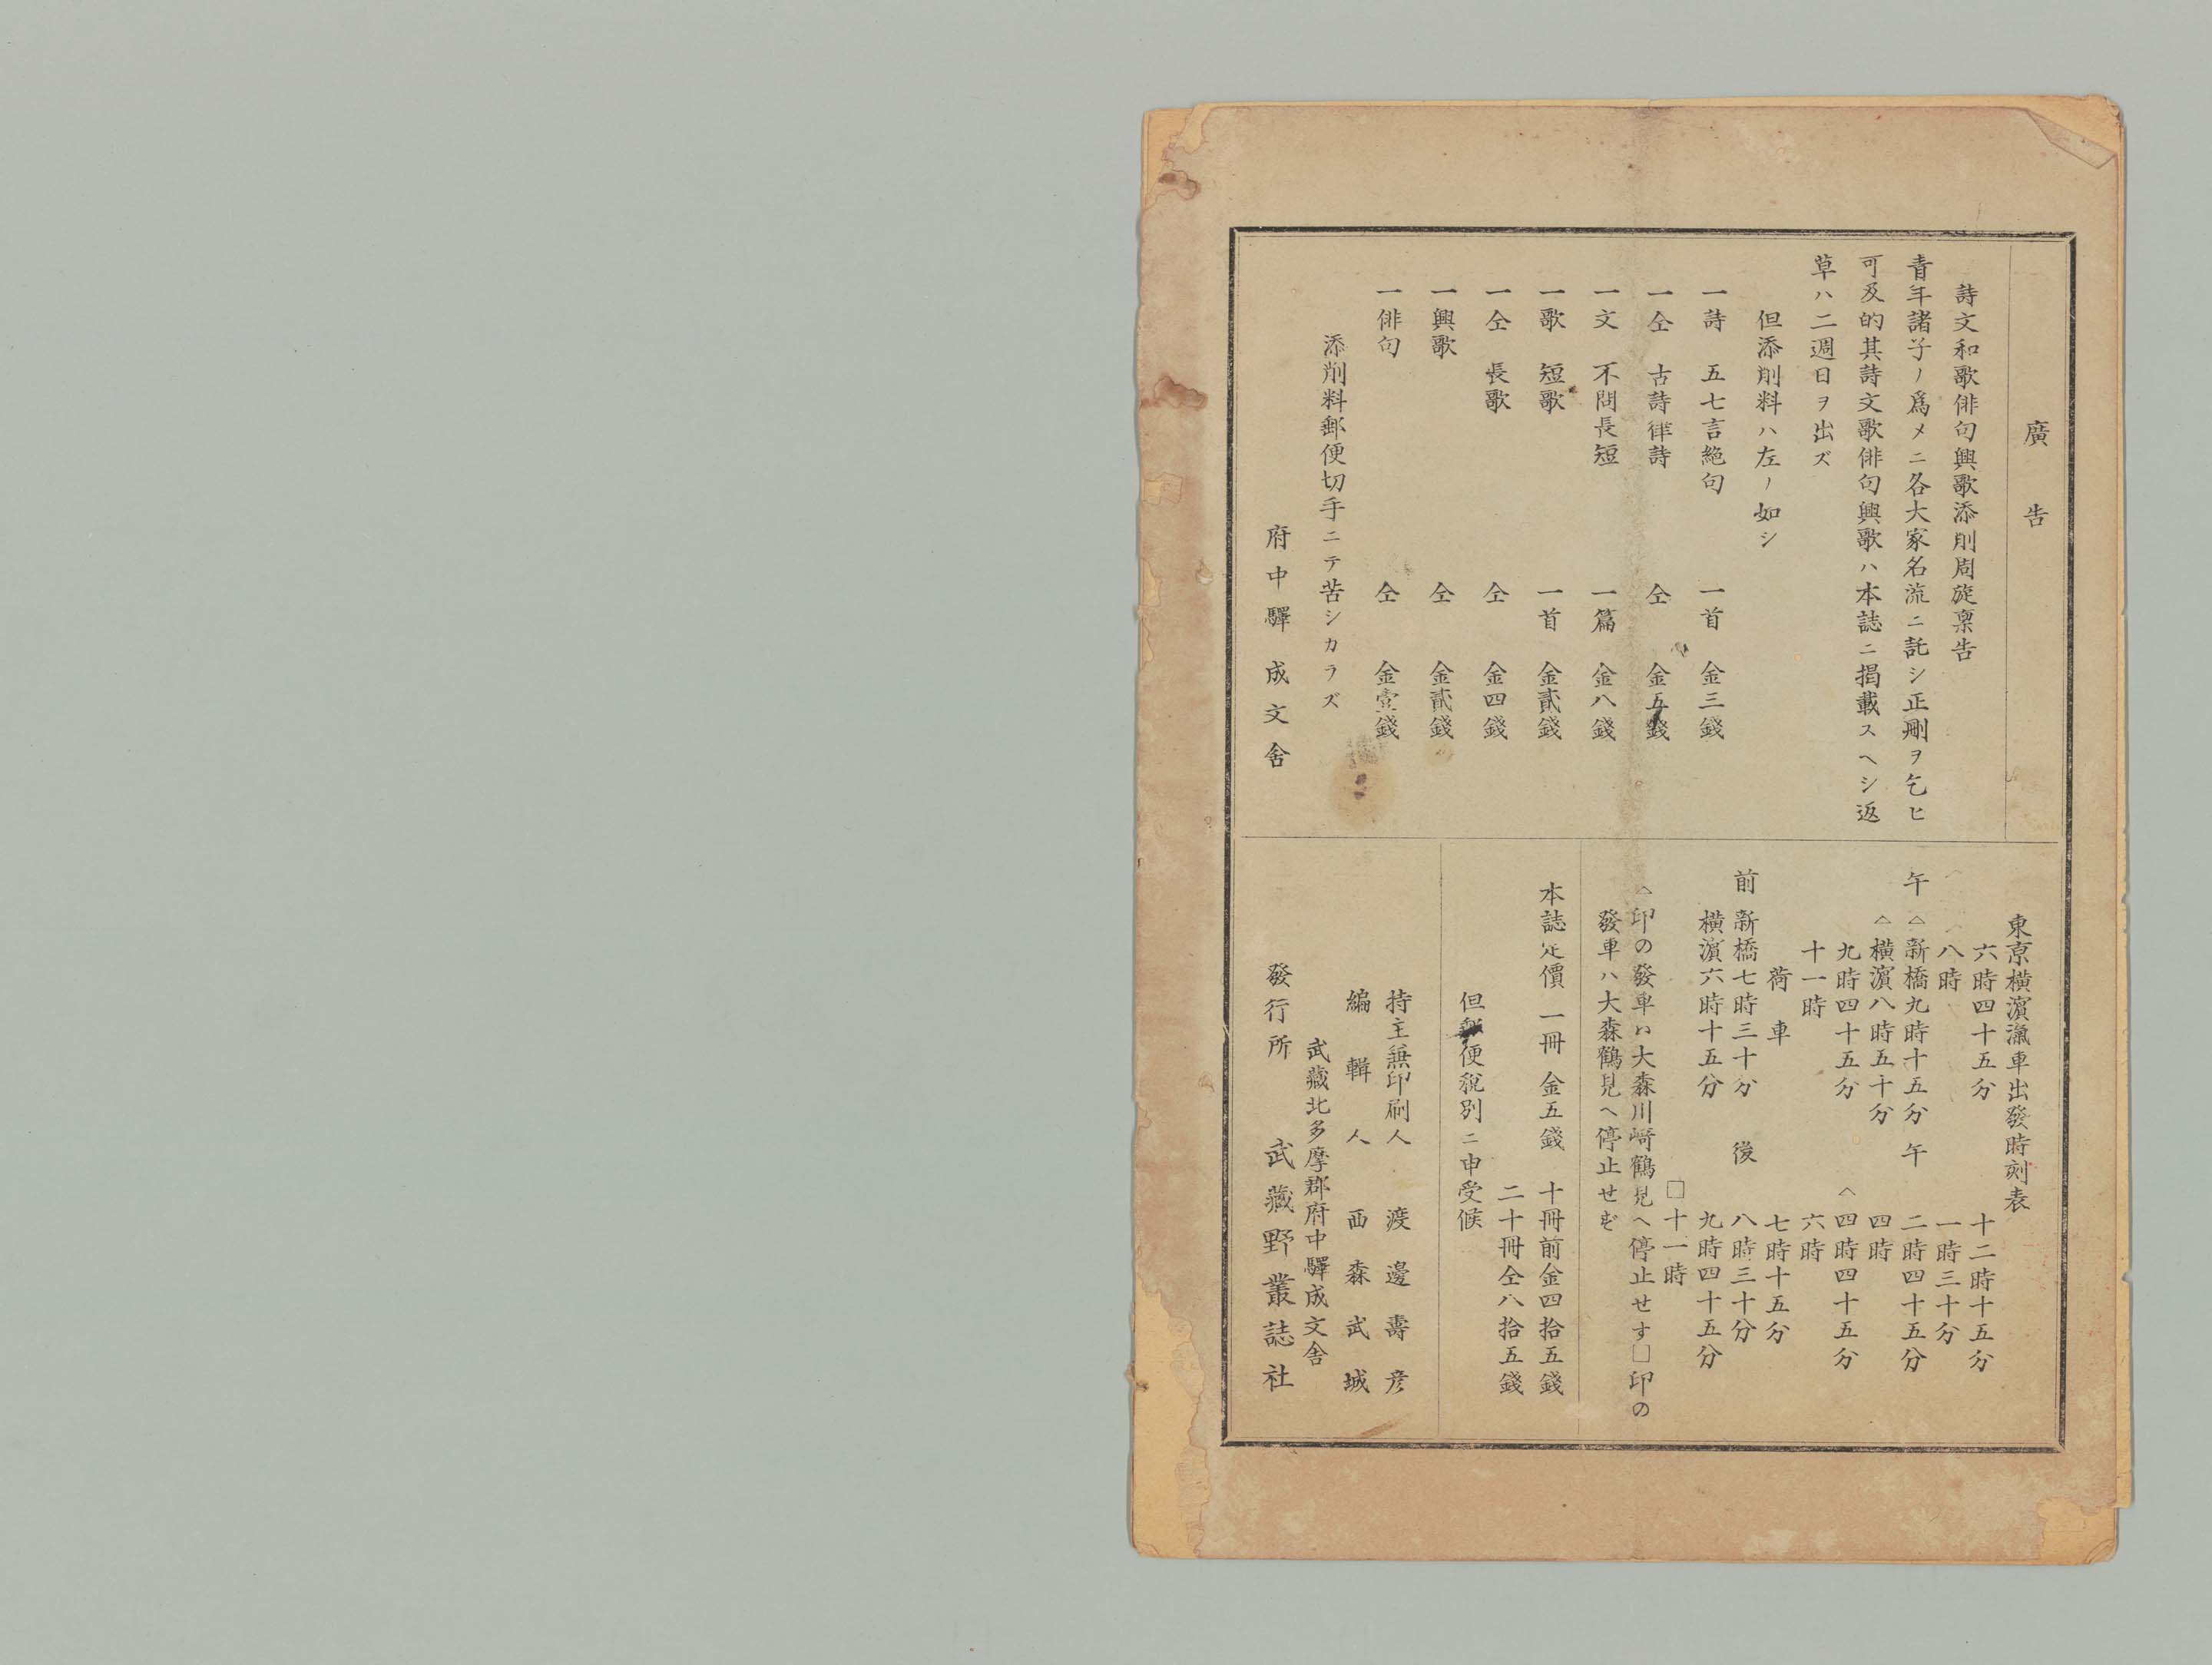 廣告
詩文和歌俳句興歌添削周旋稟告
青年諸子ノ爲メニ各大家名流ニ託シ正刪ヲ乞ヒ
可及的其詩文歌俳句興歌ハ本誌ニ掲載スヘシ返
草ハ二週日ヲ出ズ
但添削料ハ左ノ如シ
一詩 五七言絶句 一首 金三錢
一仝 古詩律詩 仝 金五錢
一文 不問長短 一篇 金八錢
一歌 短歌 一首 金貳錢
一仝 長歌 仝 金四錢
一興歌 仝 金貳錢
一俳句 仝 金壹錢
添削料郵便切手ニテ苦シカラズ
府中驛 成文舍
東京横濱滊車出發時刻表
午前
六時四十五分
八時
△新橋九時十五分
△横濱八時五十分
九時四十五分
十一時
荷車
新橋七時三十分
横濱六時十五分
午後
十二時十五分
一時三十分
二時四十五分
四時
△四時四十五分
六時
七時十五分
八時三十分
九時四十五分
□十一時
△印の發車ハ大森川崎鶴見へ停止せす□印の
發車ハ大森鶴見へ停止せず
本誌定價 一冊 金五錢 十冊前金四拾五錢
二十冊仝八拾五錢
但郵便税別ニ申受候
持主兼印刷人 渡邊壽彦
編輯人 西森武城
武藏北多摩郡府中驛成文舍
發行所 武藏野叢誌社